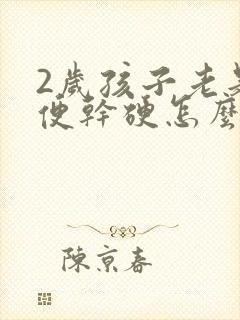 2歲孩子老是
便幹硬怎麼
陳京春